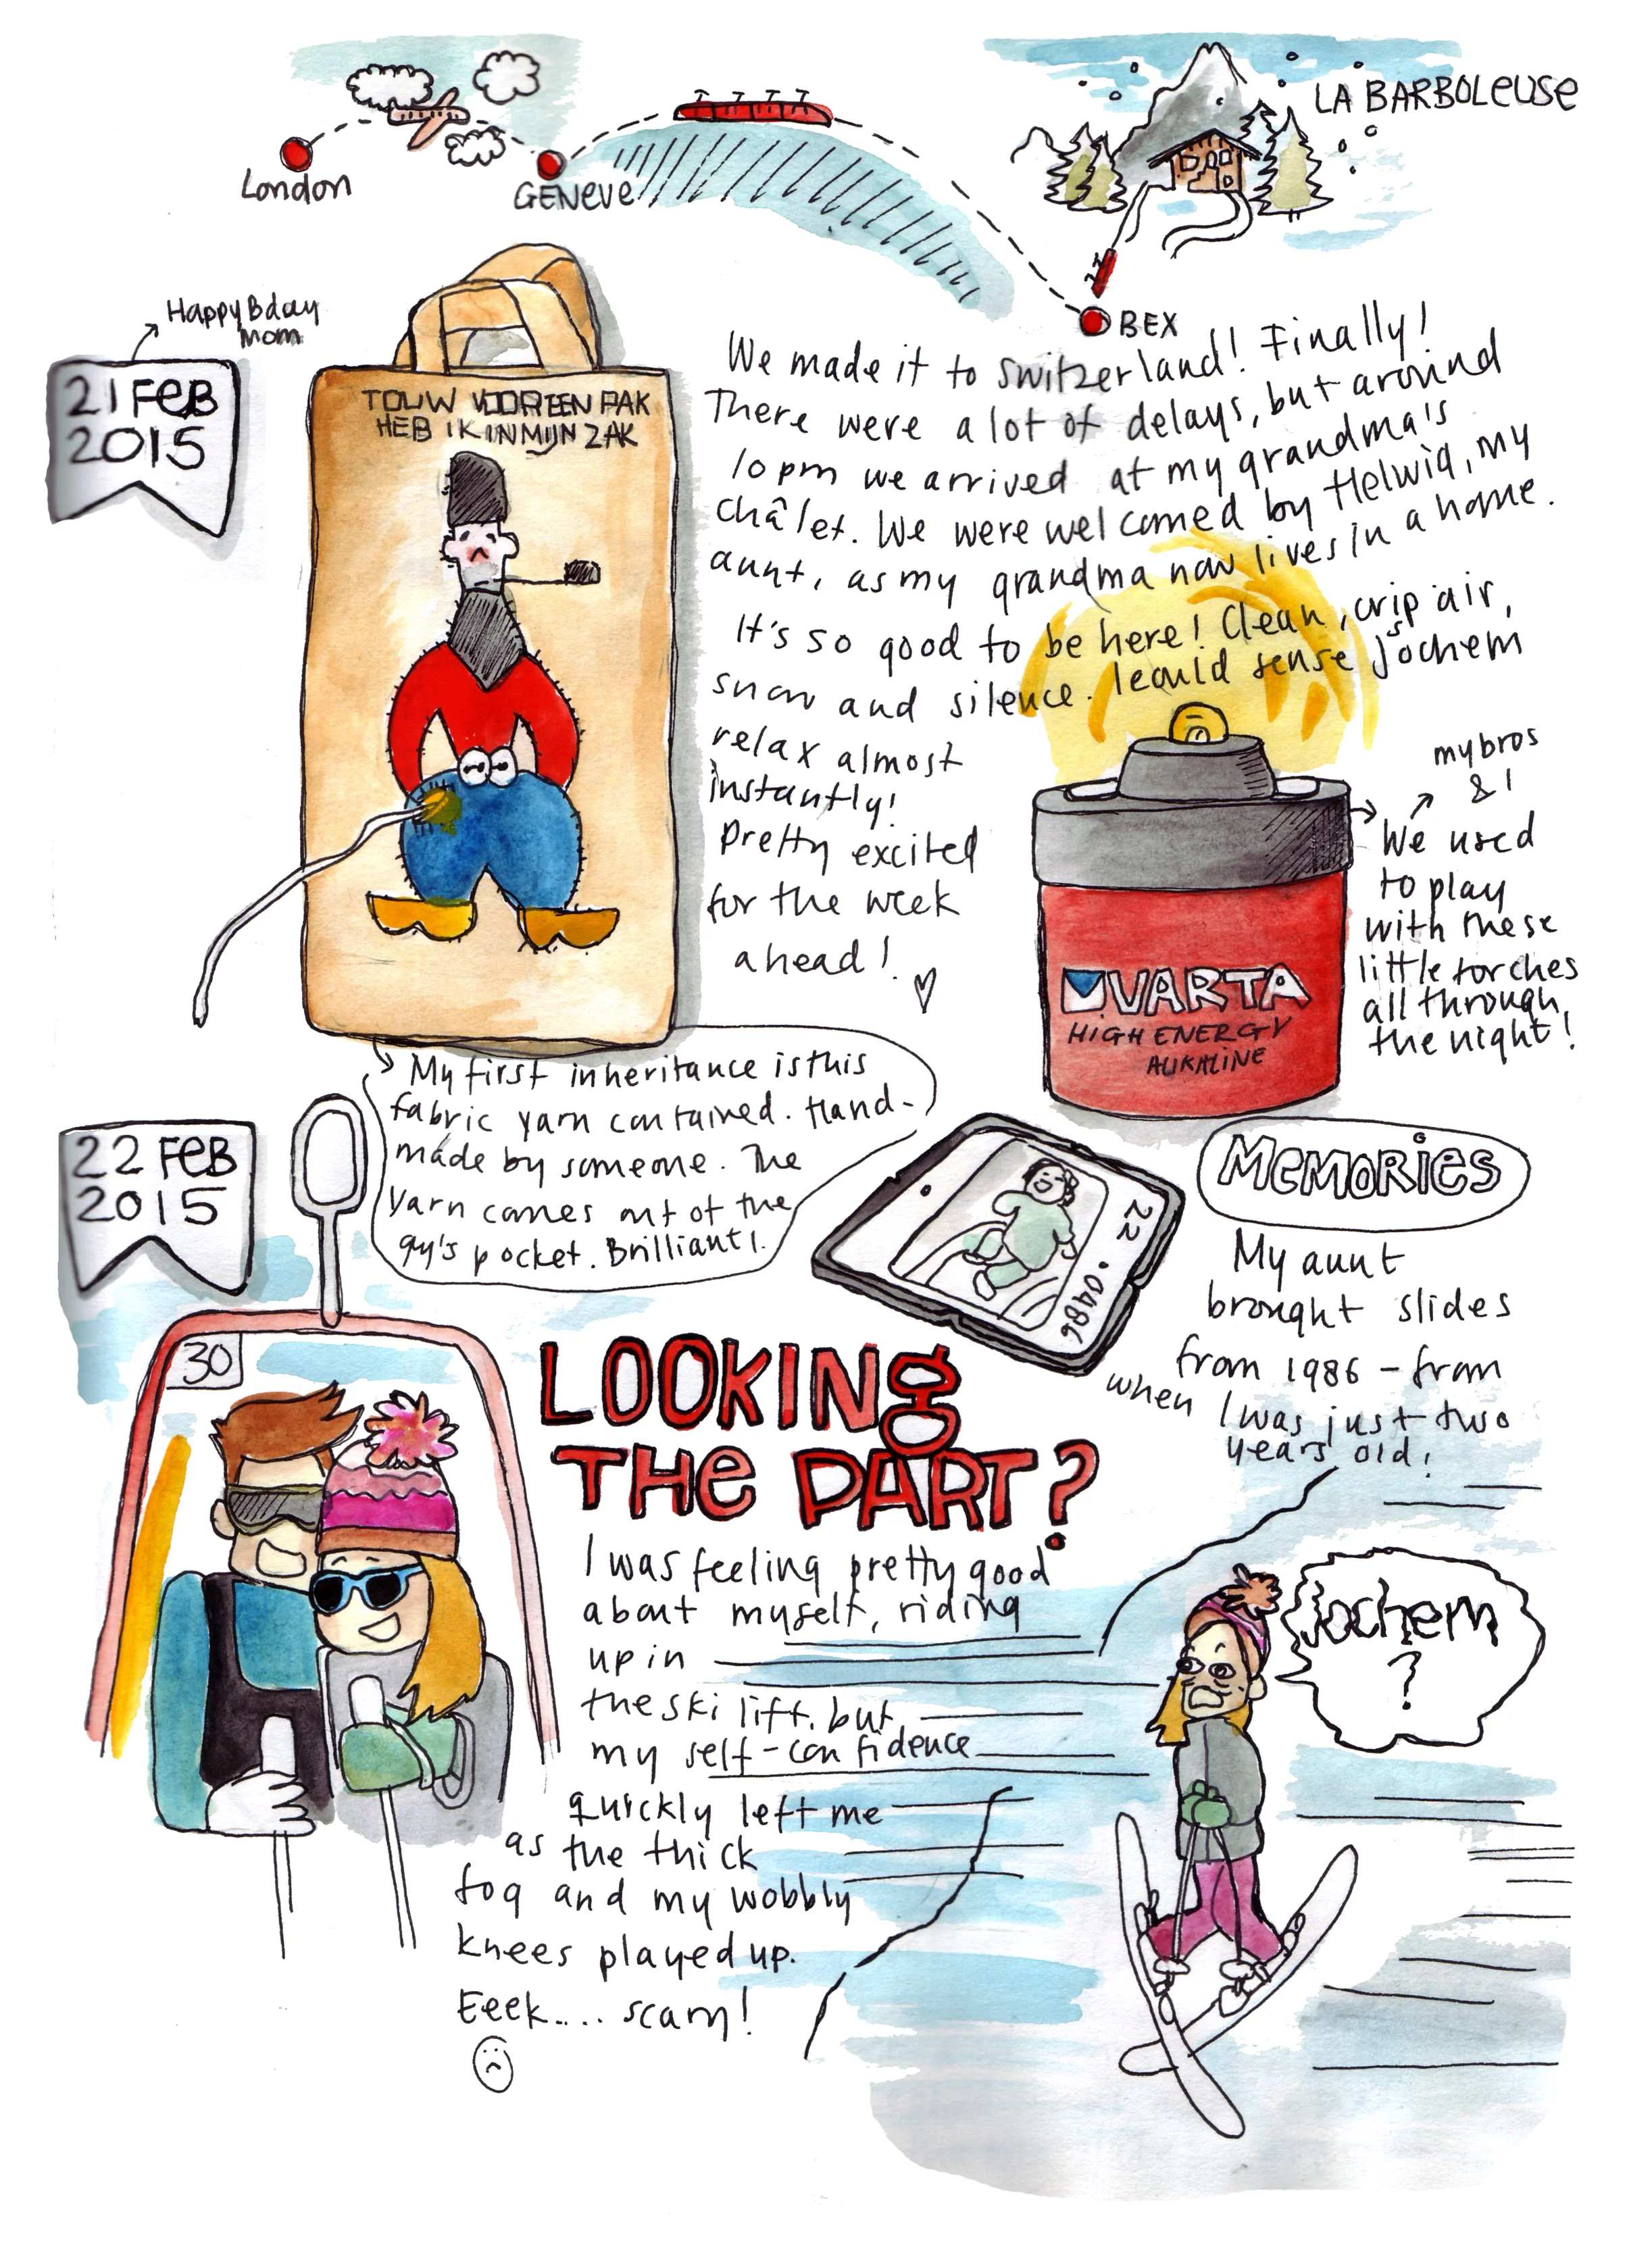 London
GENeve
LA BARBOLeuse
BEX
Happy Bday
mom
21 Feb
2015
TOUW VOOR EEN PAK
HEB IK IN MIJN ZAK
We made it to Switzerland! Finally!
There were a lot of delays, but around
10 pm we arrived at my grandma's
châlet. We were welcomed by Helwig, my
aunt, as my grandma now lives in a home.
It's so good to be here! Clean, crisp air,
snow and silence. I could sense Jochem
relax almost
instantly!
Pretty excited
for the week
ahead!
my bros
& I
We used
to play
with these
little torches
all through
the night!
VARTA
HIGH ENERGY
ALKALINE
My first inheritance is this
fabric yarn contained. Hand-
made by someone. The
yarn comes out of the
guy's pocket. Brilliant!
22 Feb
2015
22.0486
MeMORies
My aunt
brought slides
from 1986 - from
when I was just two
years old!
30
LOOKINg
THe PART?
I was feeling pretty good
about myself, riding
up in
the ski lift, but
my self-confidence
quickly left me
as the thick
fog and my wobbly
knees played up.
Eeek.... scary!
Jochem
?